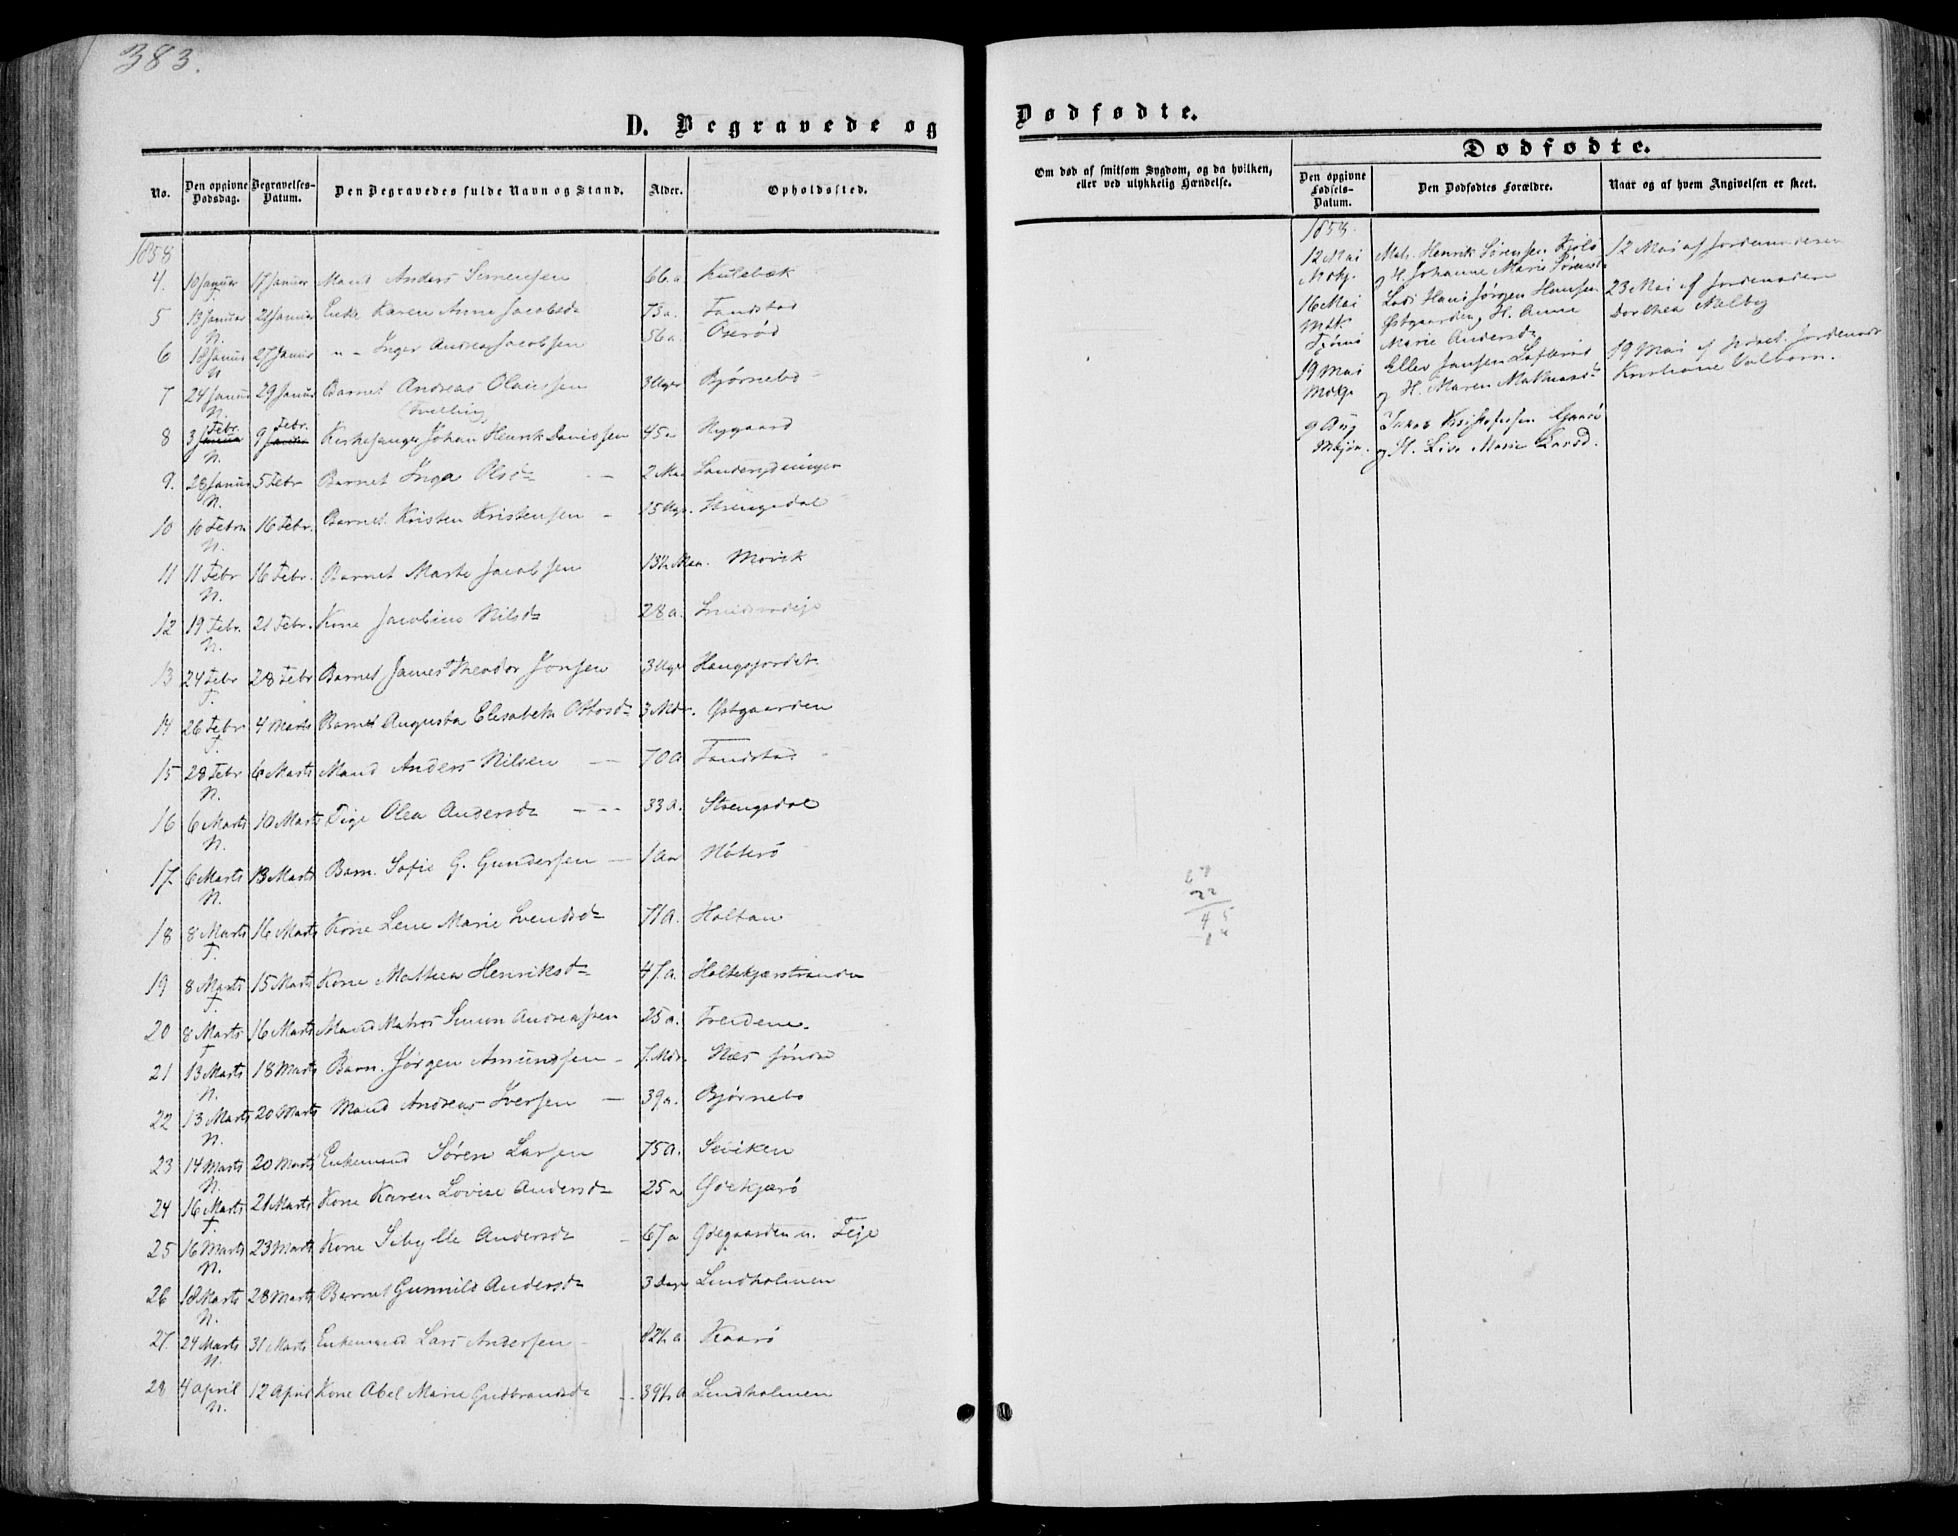 383.
D. Begravede og
No. Den opgivne Dødsdag. Begravelses-Datum. Den Begravedes fulde Navn og Stand. Alder. Opholdssted.
1858
4. 10 Januar T. 17 Januar Mand Anders Simensen 66 a Kulebæk
5 13 Januar N. 21 Januar Enke Karen Anne Jacobsd 73 a. Tandstad
6 18 Januar N 27 Januar " - Inger Andrea Jacobsen 56 a. Oserød
7 24 Januar N. 29 Januar Barnet Andreas Olaussen 3 Uger Bjørnebo
(Tvilling)
8 3 Januar Febr. N. 9 Januar Febr. Kirkesanger Johan Henrik Davidsen 45 a Rygaard
9. 28 Januar N. 5 Febr Barnet Inga Olsd
10 10 Febru N. 16 Febr. Barnet Kristen Kristensen 15 Strengsdal
11 11 Febr N. 16 Febr. Barnet Marte Jacobsen Movik
12 19 Febr. N. 21 Febr. Kone Jacobine Nilsd 28 a.
13 24 Febr T. 28 Febr Barnet James Theodor Jonsen 3 Uger Haugsjordet
14 26 Febr T. 4 Marts Barnet Augusta Elisabeth Ottosd 3 Mdr. Østgaarden
15 28 Febr N. 6 Marts Mand Anders Nilsen 70 a Tandstad
16 6 Marts N. 10 Marts Pige Olea Andersd 33 a. Strengsdal
17 6 Marts N. 13 Marts Barn. Sofie G. Gundersen 1 aar Nøterø
18 8 Marts T. 16 Marts Kone Lene Marie Svendsd 71 a. Holtan
19 8 Marts T. 15 Marts Kone Mathea Henriksd 47 a. Holtekjærstranden
20 8 Marts T 16 Marts Mand Matros Simon Andreassen 25 a.
21 13 Marts N. 18 Marts Barn. Jørgen Amundsen 7 Mdr. Næs
22 13 Marts N. 20 Marts Mand Andreas Iversen 39 a. Bjørnebo
23 14 Marts N. 20 Marts Enkemand Søren Larsen 75 a. Seviken
24 16 Marts T. 21 Marts Kone Karen Lovise Andersd 25 a Ødekjærø
25 16 Marts N. 23 Marts Kone Sibylle Andersd 67 a Ødegaarden u. Teje
26 18 Marts N. 28 Marts Barnet Gunnild Andersd 3 Dage Lindholmen
27. 24 Marts N. 31 Marts Enkemand Lars Andersen 82½ a Kaarø
28 4 April N. 12 April Kone Abel Marie Gudbrandsd 39½ a Lindholmen
Dødfødte.
Om død af smitsom Sygdom, og da hvilken, eller ved ulykkelig Hændelse.
Dødfødte.
Den opgivne Fødsels-Datum. Den Dødfødtes Forældre. Naar og af hvem Angivelsen er skeet.
1858.
12 Mai Mat. Henrik Sørensen Kjølo 12 Mai af Jordemoderen
Mdkj. og H. Johanne Marie Sørensd
16 Mai Lods Hans Jørgen Hansen 23 Mai af Jordemoderen
Mdk Østgaarden og H. Anne Dorthea Melby
Tjømø Marie Andersd
19 Mai Ellev Jensen 19 Mai af Jordemoder
Mdkj. og H. Maren Mathiasd Kristiane Valborn.
9 Aug Jakob Kristofersen Gaarø
Mkjøn. og H. Lise Marie Larsd.
67
22
45